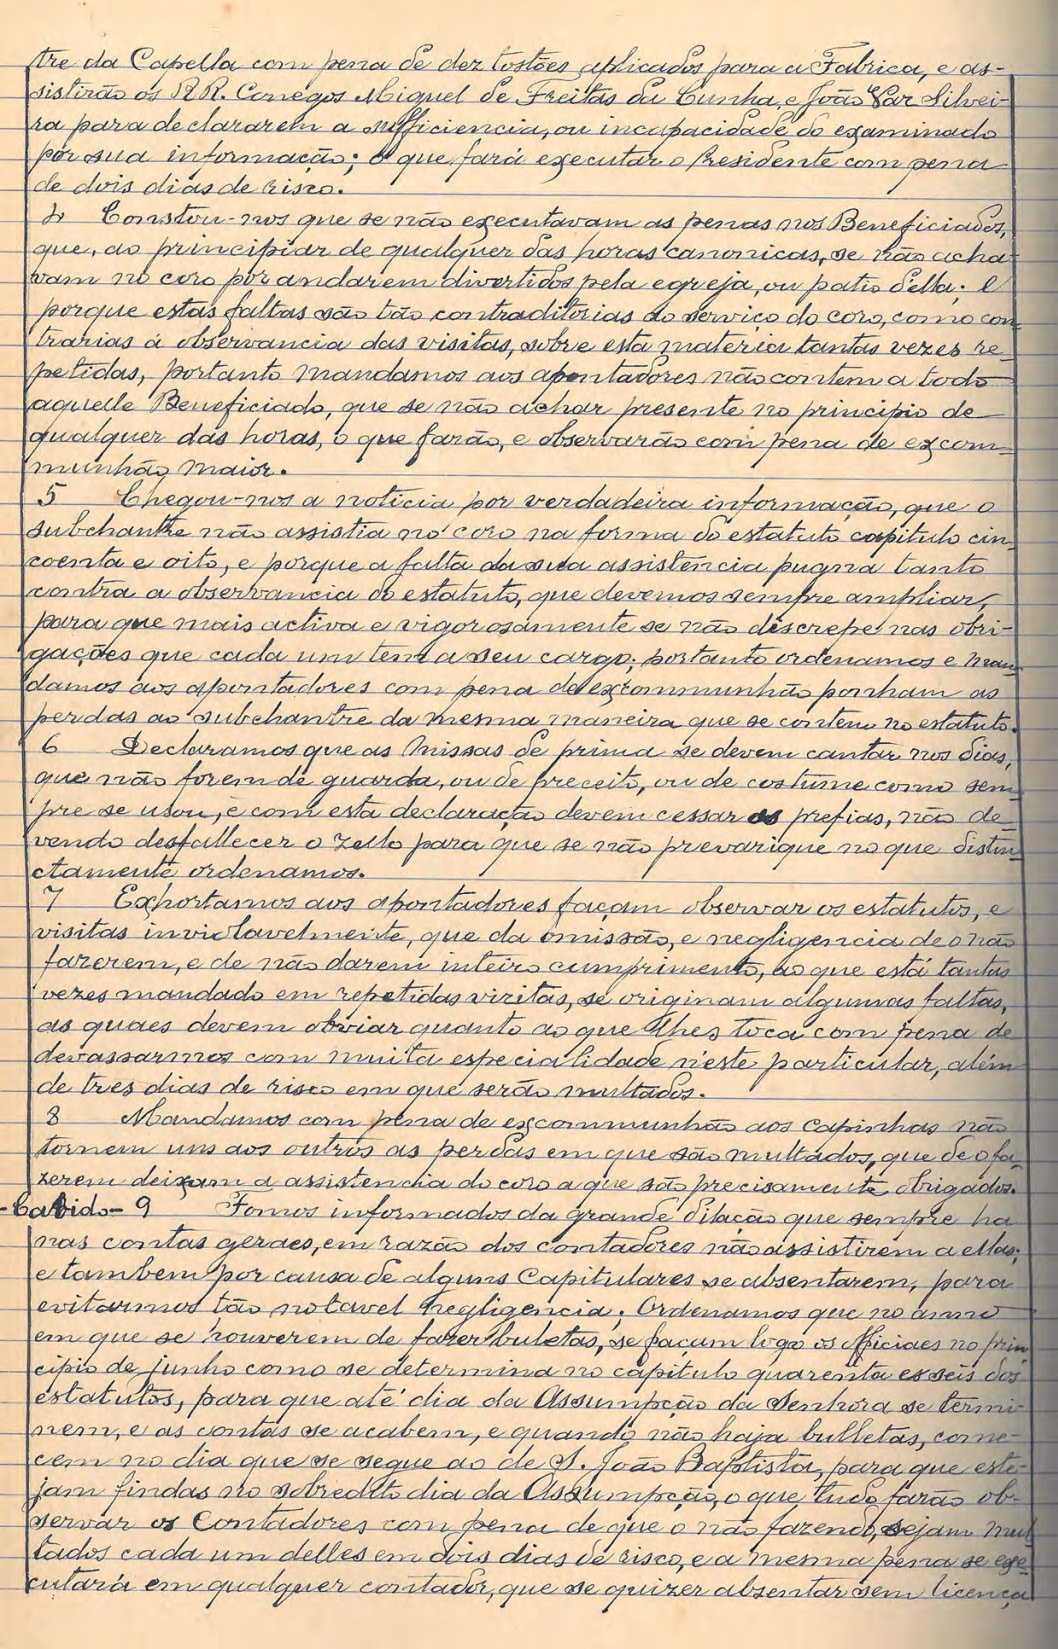 tre da Capella com pena de dez tostões aplicados para a Fabrica, e as-
sistirão os RR. Conegos Miguel de Freitas da Cunha, e João Silvei-
ra para declararem a sufficiencia, ou incapacidade do examinado
por sua informação; o que fará executar o Presidente com pena
de dois dias de risco.
4 Constou-nos que se não executavam as penas nos Beneficiados,
que, ao principiar de qualquer das horas canonicas, se não acha-
vam no coro por andarem divertidos pela egreja, ou patio della; e
porque estas faltas são tão contraditorias ao serviço do coro, como con-
trarias á observancia das visitas, sobre esta materia tantas vezes re-
petidas, portanto mandamos aos apontadores não contem a todo
aquelle Beneficiado, que se não achar presente no principio de
qualquer das horas, o que farão, e observarão com pena de excom-
munhão maior.
5 Chegou-nos a noticia por verdadeira informação, que o
subchantre não assistia no coro na forma do estatuto capitulo cin-
coenta e oito, e porque a falta da sua assistencia pugna tanto
contra a observancia do estatuto, que devemos sempre ampliar,
para que mais activa e vigorosamente se não discrepe nas obri-
gações que cada um tem a seu cargo; portanto ordenamos e man-
damos aos apontadores com pena de excommunhão ponham as
perdas ao subchantre da mesma maneira que se contem no estatuto.
6 Declaramos que as missas de prima se devem cantar nos dias,
que não forem de guarda, ou de preceito, ou de costume como sem-
pre se usou, e com esta declaração devem cessar as prefias, não de-
vendo desfallecer o zello para que se não prevarique no que distin-
ctamente ordenamos.
7 Exhortamos aos apontadores façam observar os estatutos, e
visitas inviolavelmente, que da omissão, e negligencia de o não
fazerem, e de não darem inteiro cumprimento, ao que está tantas
vezes mandado em repetidas vizitas, se originam algumas faltas,
as quaes devem obviar quanto ao que lhes toca com pena de
devassarmos com muita especialidade n'este particular, além
de tres dias de risco em que serão multados.
8 Mandamos com pena de excommunhão aos capinhas não
tornem uns aos outros as perdas em que são multados, que de o fa-
zerem deixam a assistencia do coro a que são precisamente obrigados.
-Cabido- 9 Fomos informados da grande dilação que sempre ha
nas contas geraes, em razão dos contadores não assistirem a ellas;
e tambem por causa de alguns Capitulares se absentarem, para
evitarmos tão notavel negligencia; Ordenamos que no anno
em que se houverem de fazer buletas, se façam logo os officiaes no prin-
cipio de junho como se determina no capitulo quarenta e seis dos
estatutos, para que até dia da Assumpção da Senhora se termi-
nem, e as contas se acabem, e quando não haja bulletas, come-
cem no dia que se segue ao de S. João Baptista, para que este-
jam findas no sobredito dia da Assumpção, o que tudo farão ob-
servar os Contadores com pena de que o não fazendo, sejam mul-
tados cada um delles em dois dias de risco, e a mesma pena se exe-
cutará em qualquer contador, que se quizer absentar sem licença